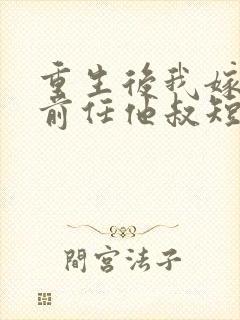 重生後我嫁
前任他叔短
間宮法子